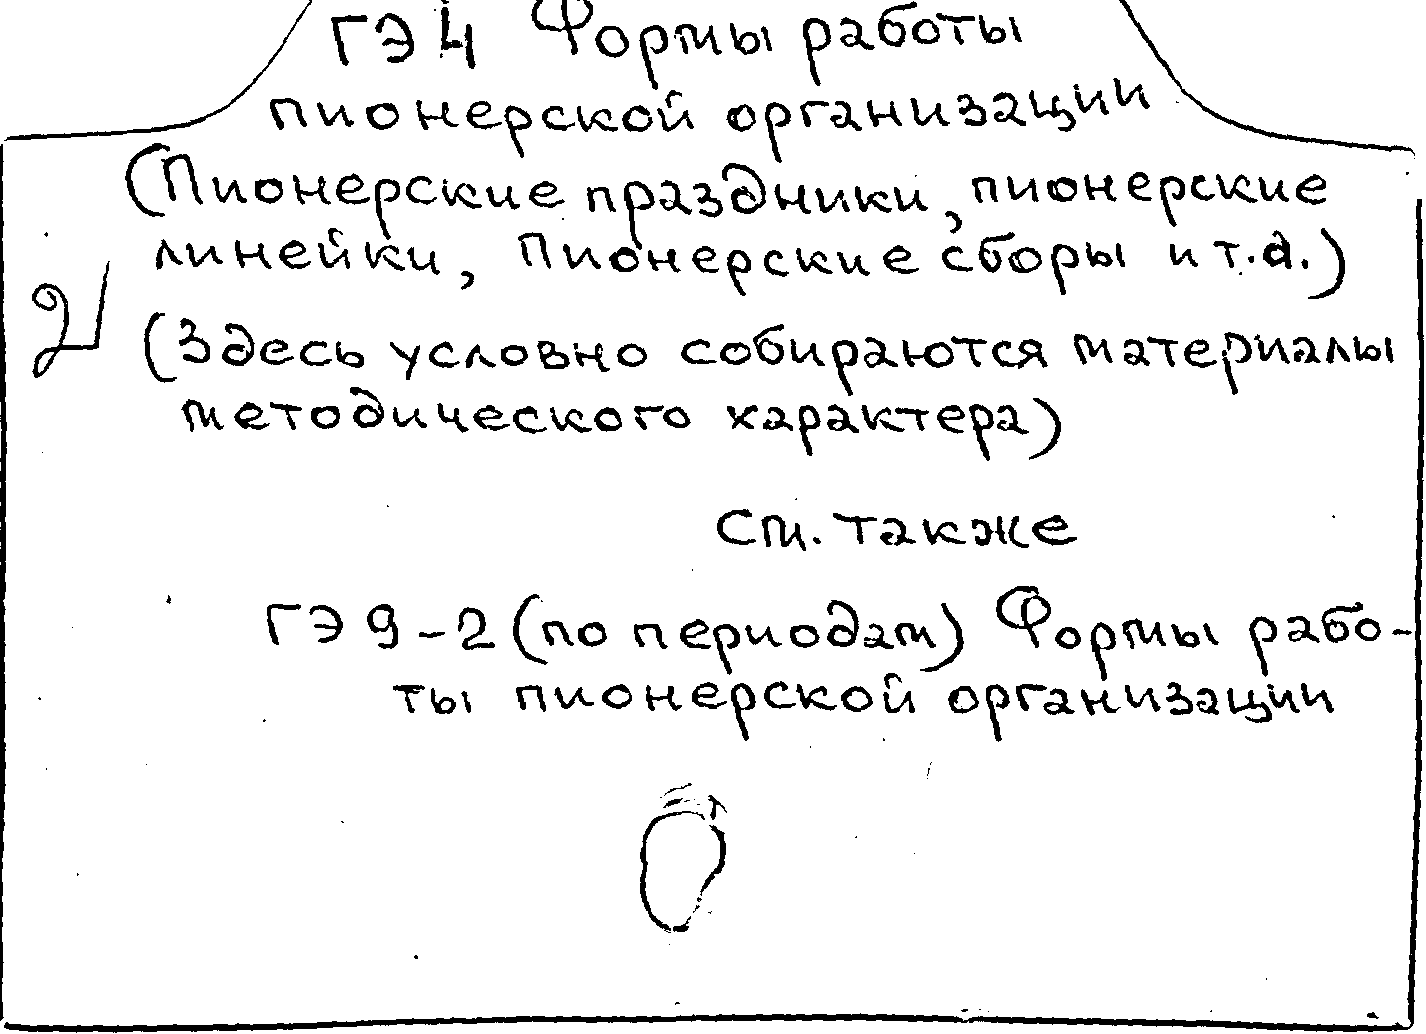 ГЭ4 Формы работы
пионерской организации
(Пионерские праздники, пионерские
линейки, пионерские сборы и т.д.)
(Здесь условно собираются материалы
методического характера)
см. также
ГЭ9-2 (по периодам) Формы рабо-
ты пионерской организации